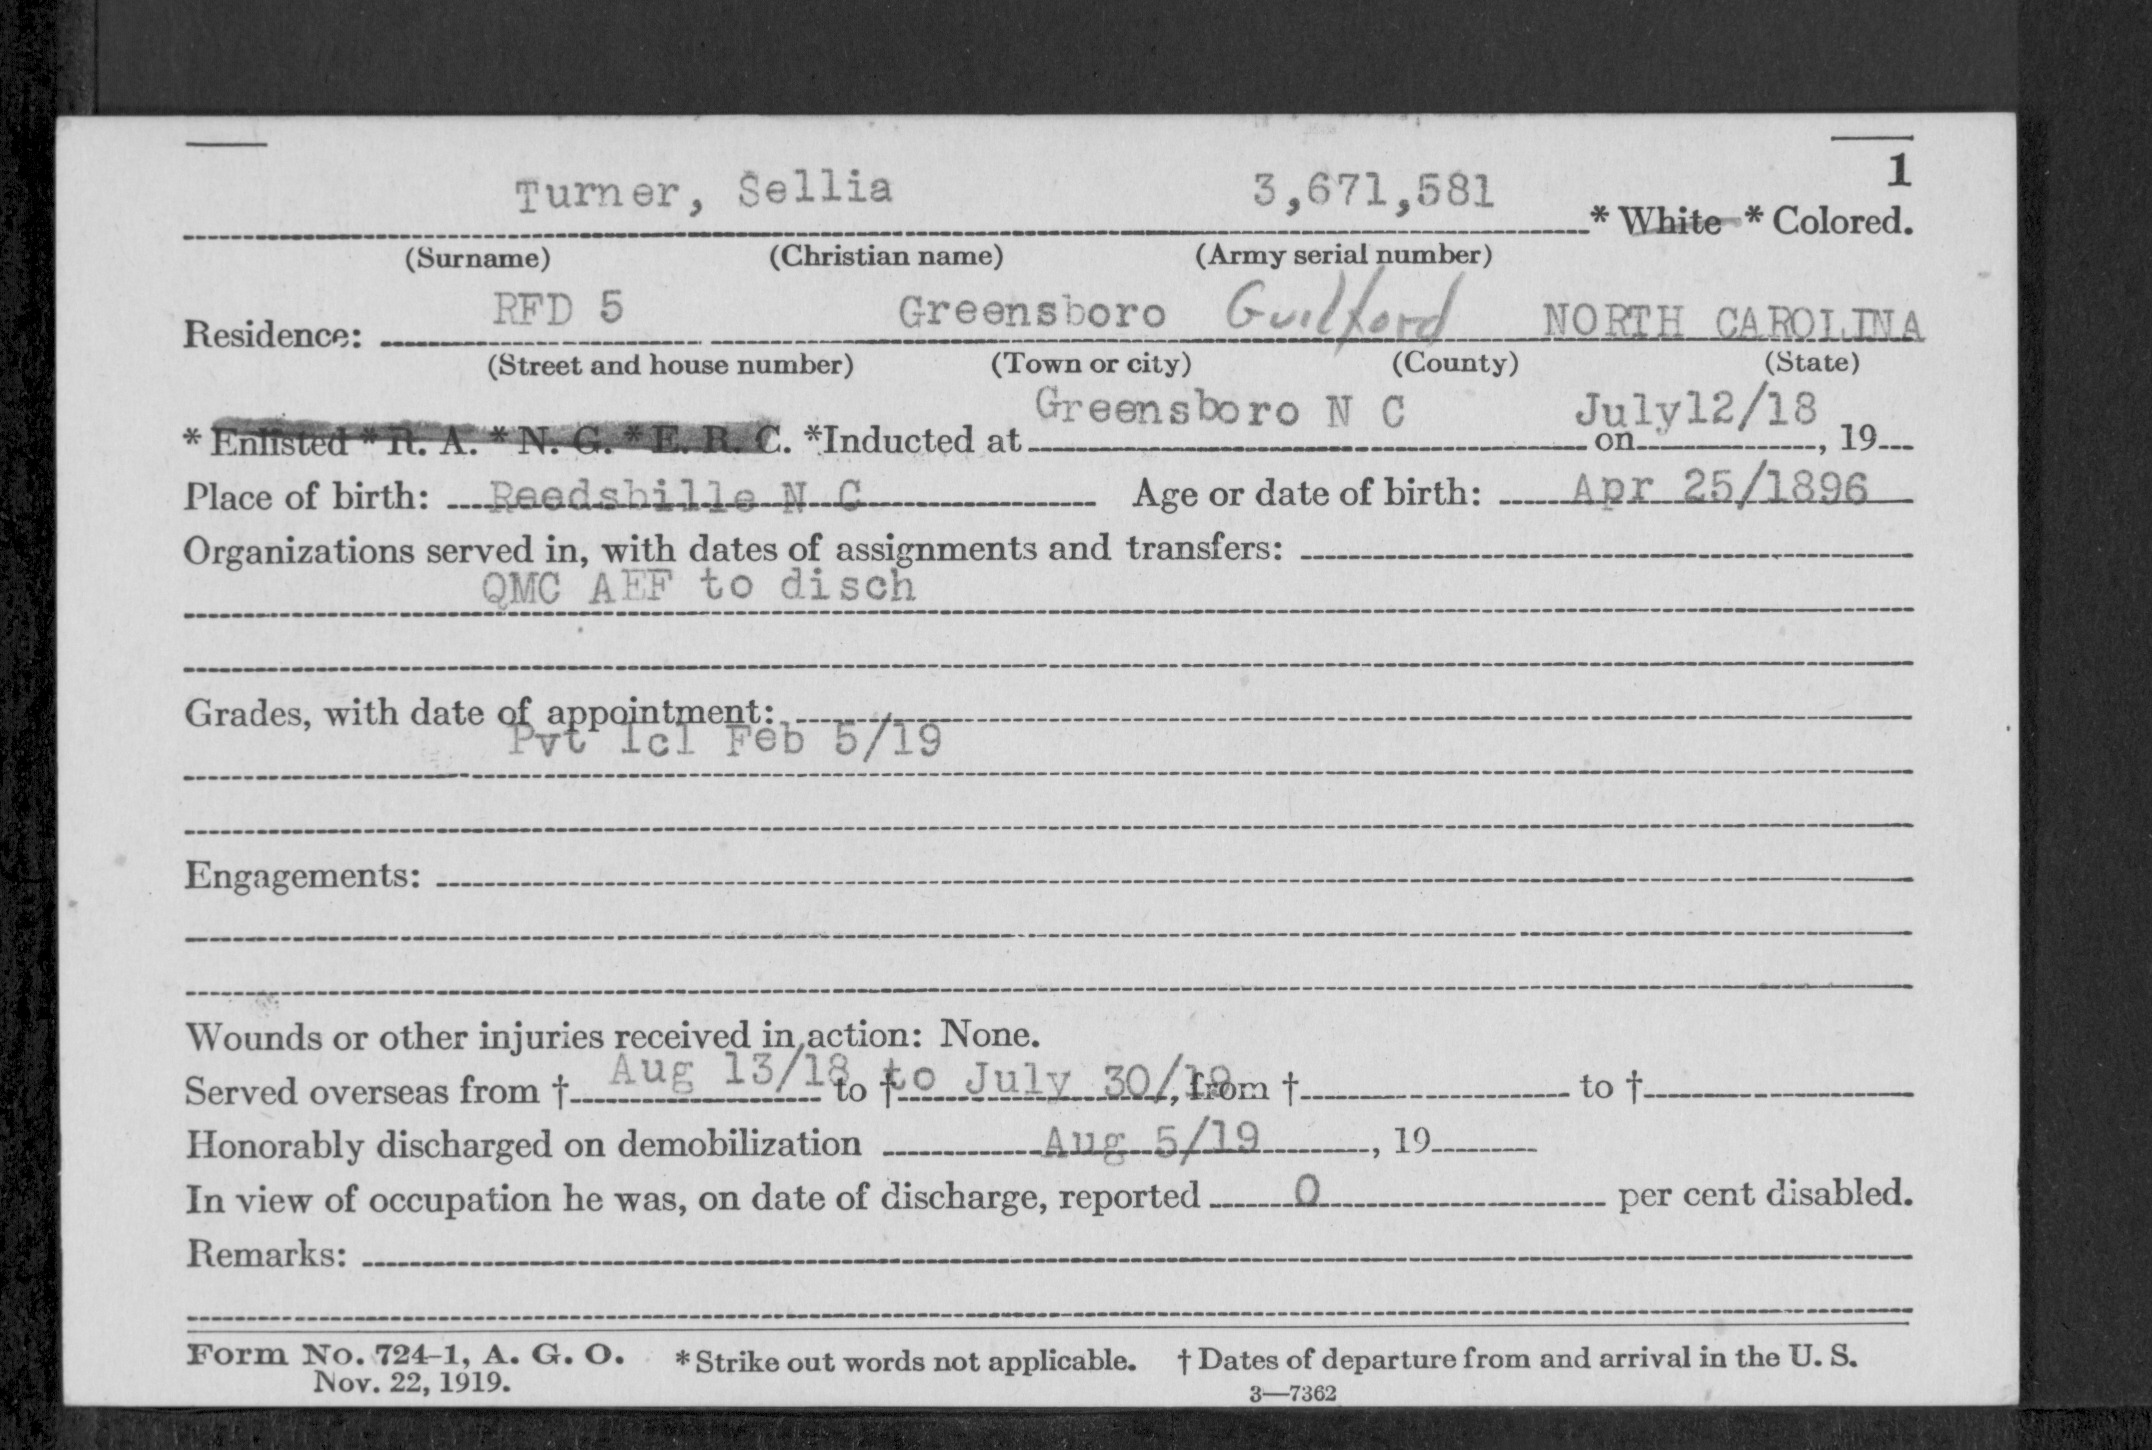 1
Turner, Sellia 3,671,581 * White * Colored.
(Surname) (Christian name) (Army serial number)
Residence: RFD 5 Greensboro Guilford NORTH CAROLINA
(Street and house number) (Town or city) (County) (State)
* Enlisted * R. A. * N. G. * E. R. C. *Inducted at Greensboro N C on July12/18, 19
Place of birth: Reedsbille N C Age or date of birth: Apr 25/1896
Organizations served in, with dates of assignments and transfers:
QMC AEF to disch
Grades, with date of appointment:
Pvt 1cl Feb 5/19
Engagements:
Wounds or other injuries received in action: None.
Served overseas from † Aug 13/18 to † to July 30/19, from † to †
Honorably discharged on demobilization Aug 5/19, 19
In view of occupation he was, on date of discharge, reported 0 per cent disabled.
Remarks:
Form No. 724-1, A. G. O. * Strike out words not applicable. † Dates of departure from and arrival in the U. S.
Nov. 22, 1919. 3—7362